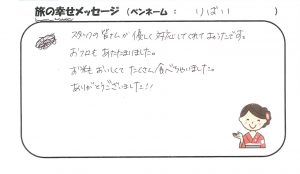 旅の幸せメッセージ（ペンネーム： りばい ）
スタッフの皆さんが優しく対応してくれてよかったです。
お風呂もあたたまりました。
お米もおいしくてたくさん食べちゃいました。
ありがとうございました!!